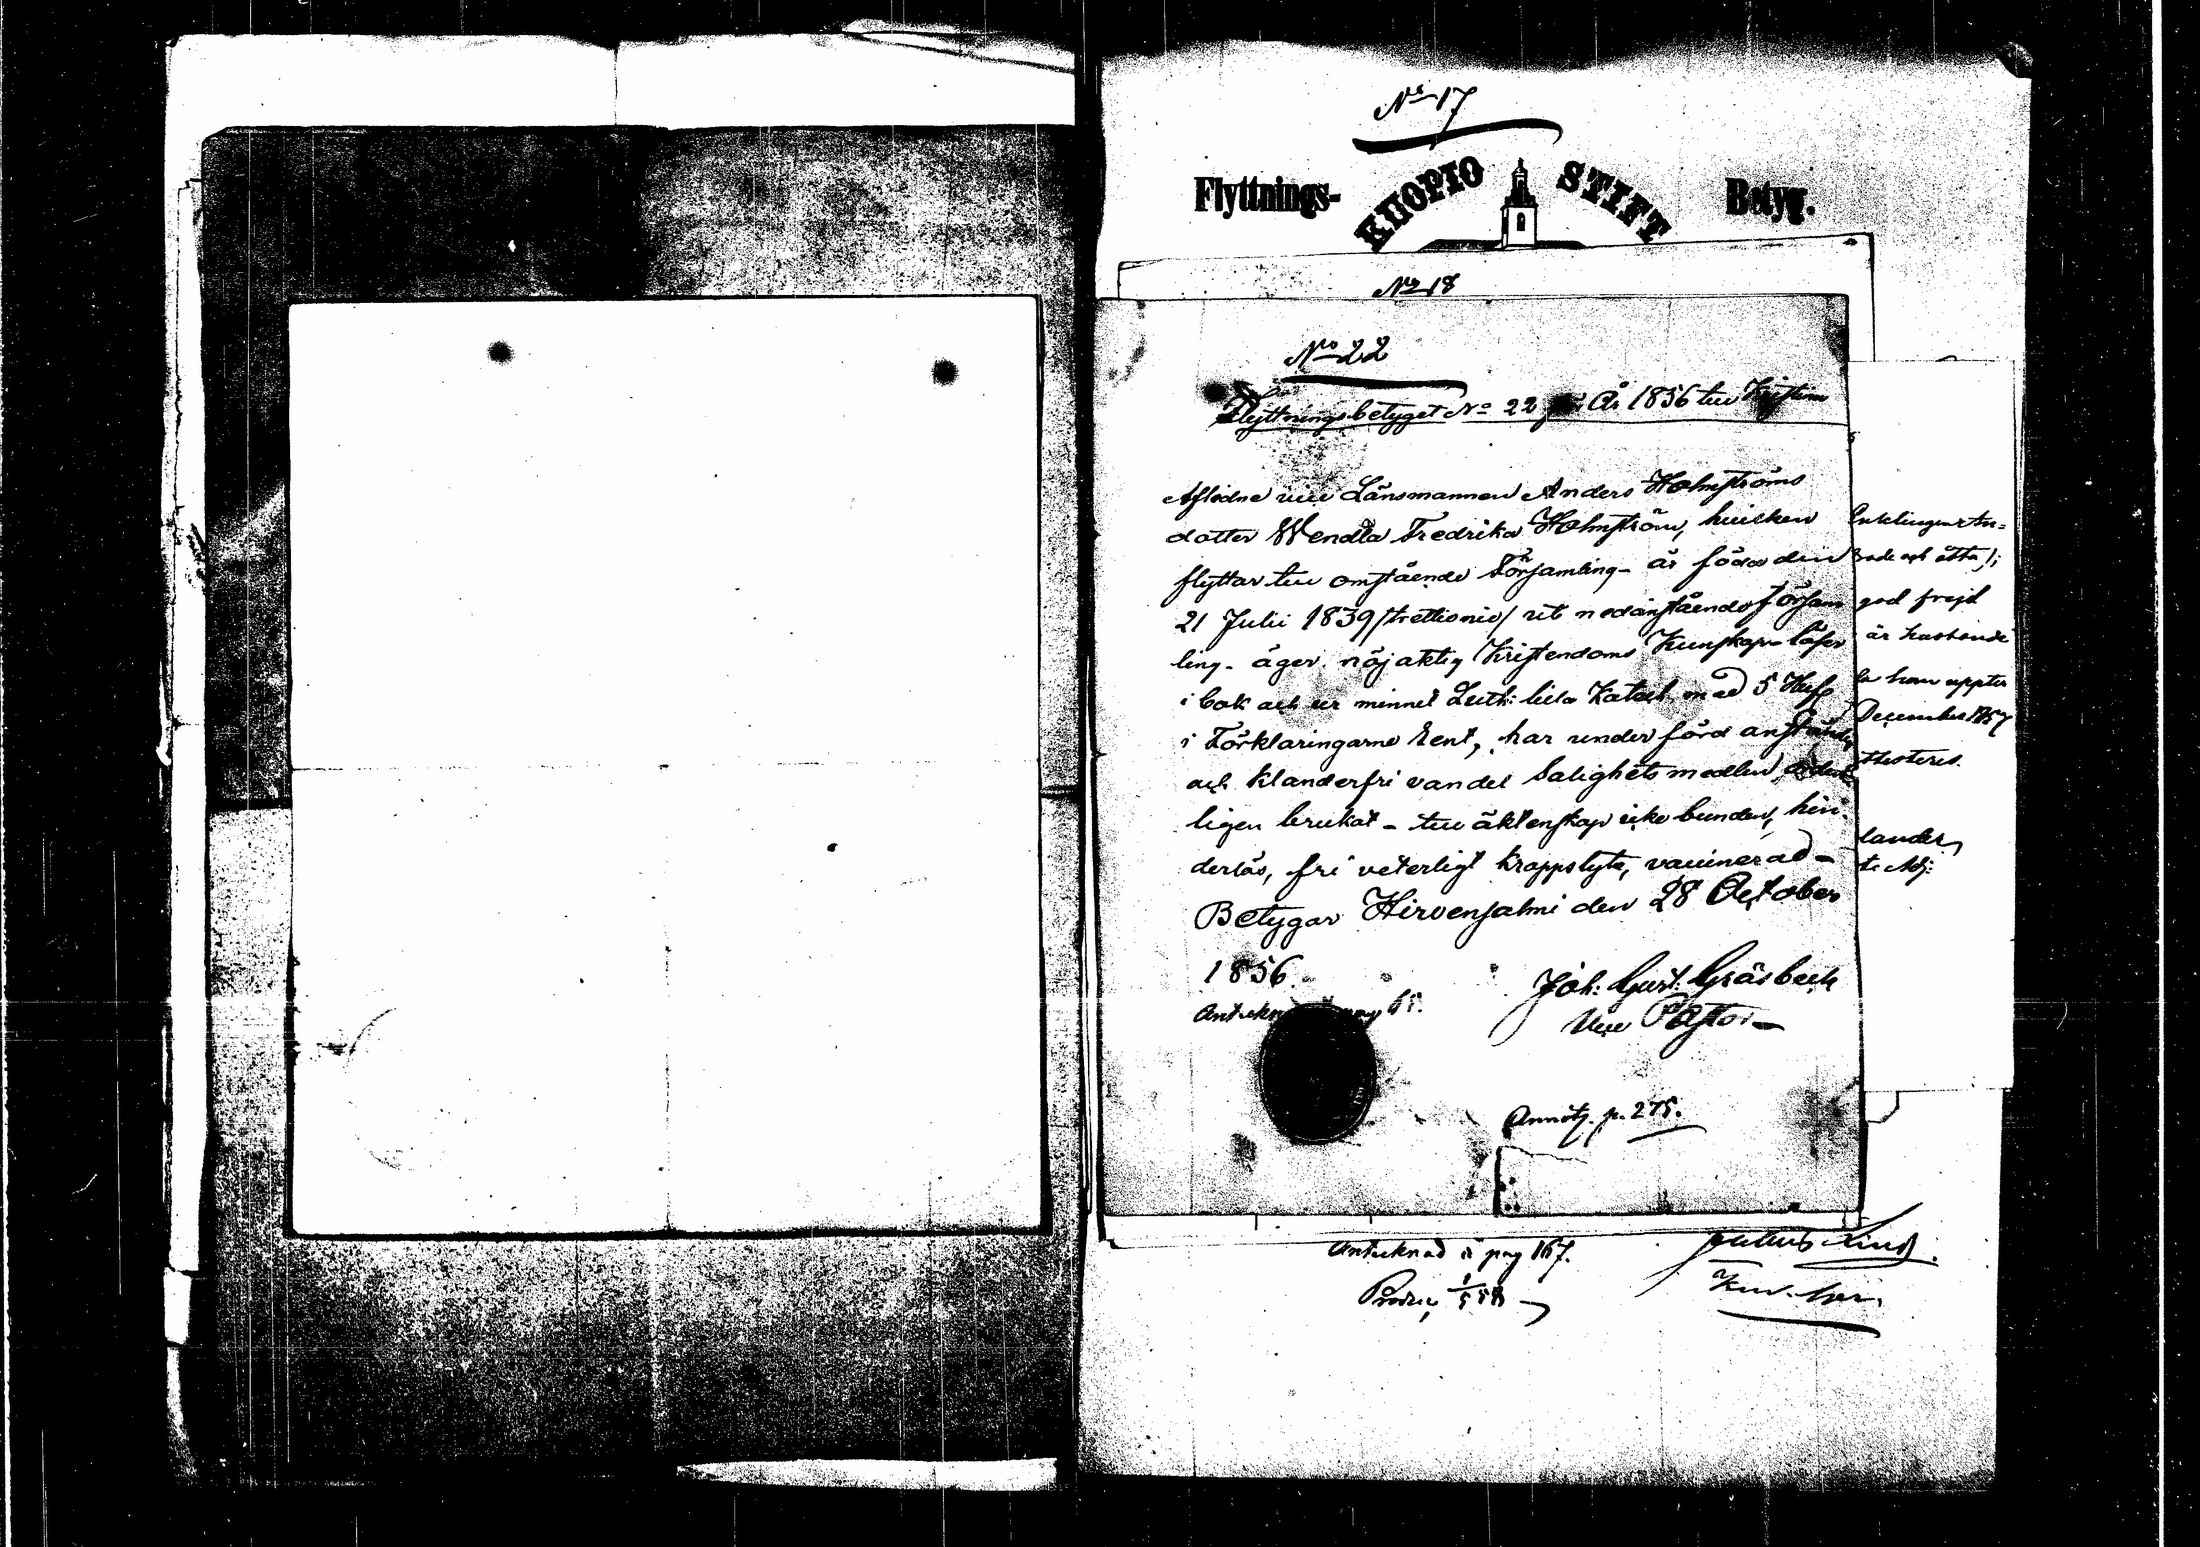 No 17
Flyttnings- KUOPIO STIFT Betyg.
No 18
No 22
Flyttningsbetyget No 22 för År 1856 till Kristina
Aflidne vice Länsmannen Anders Holmströms
dotter Wendla Fredrika Holmström, hvilken
flyttar till omstående Församling är född den
21 Julii 1839 /trettionio/ uti nedanstående Försam
ling. äger nöjaktig Kristendoms Kunskap läser
i bok och ur minnet Luth: lilla Katech. med 5 Huf
i Förklaringarne Rent, har under förd anständig
och klanderfri vandel Salighets medlen
ligen brukat - till äktenskap icke bunden, hin
derlös, fri veterligt kroppslyte, vaccinerad -
Betygar Hirvensalmi den 28 October
1856.
Joh: Gust: Gråsbeck
Vice Pastor
Antekn pag 65.
Annot. p. 275.
och åtta/;
god frejd
December 1857
lander
t. Adj:
Antecknad å pag 167.
Julius Lind